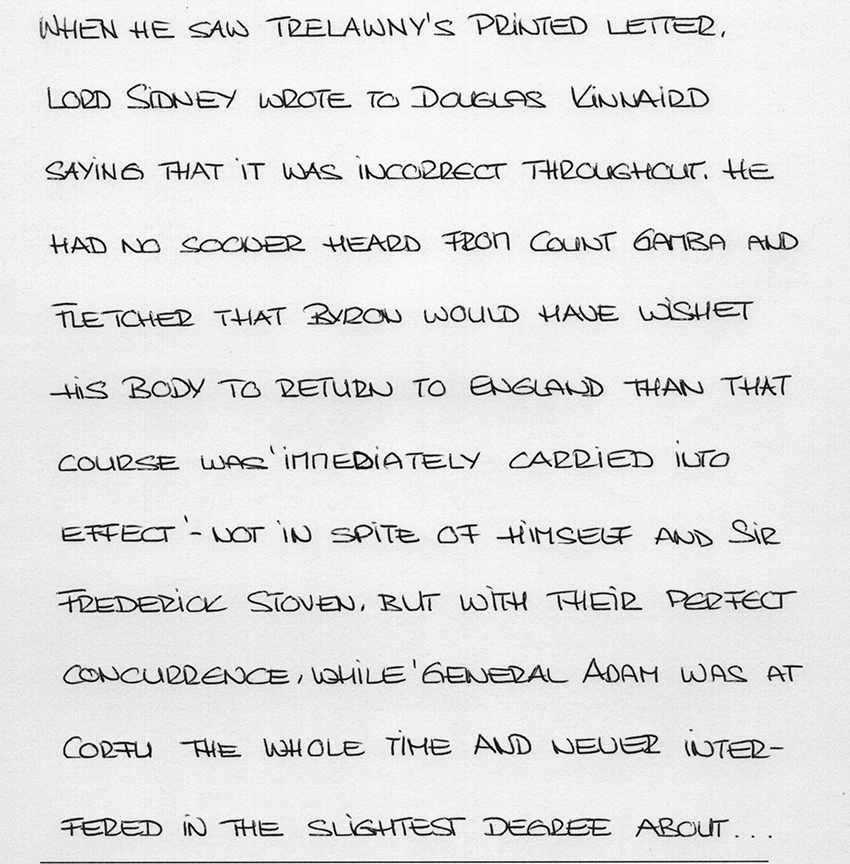 WHEN HE SAW TRELAWNY'S PRINTED LETTER,
LORD SIDNEY WROTE TO DOUGLAS KINNAIRD
SAYING THAT IT WAS INCORRECT THROUGHOUT. HE
HAD NO SOONER HEARD FROM COUNT GAMBA AND
FLETCHER THAT BYRON WOULD HAVE WISHET
HIS BODY TO RETURN TO ENGLAND THAN THAT
COURSE WAS 'IMMEDIATELY CARRIED INTO
EFFECT'- NOT IN SPITE OF HIMSELF AND SIR
FREDERICK STOVEN, BUT WITH THEIR PERFECT
CONCURRENCE, WHILE 'GENERAL ADAM WAS AT
CORFU THE WHOLE TIME AND NEVER INTER-
FERED IN THE SLIGHTEST DEGREE ABOUT...